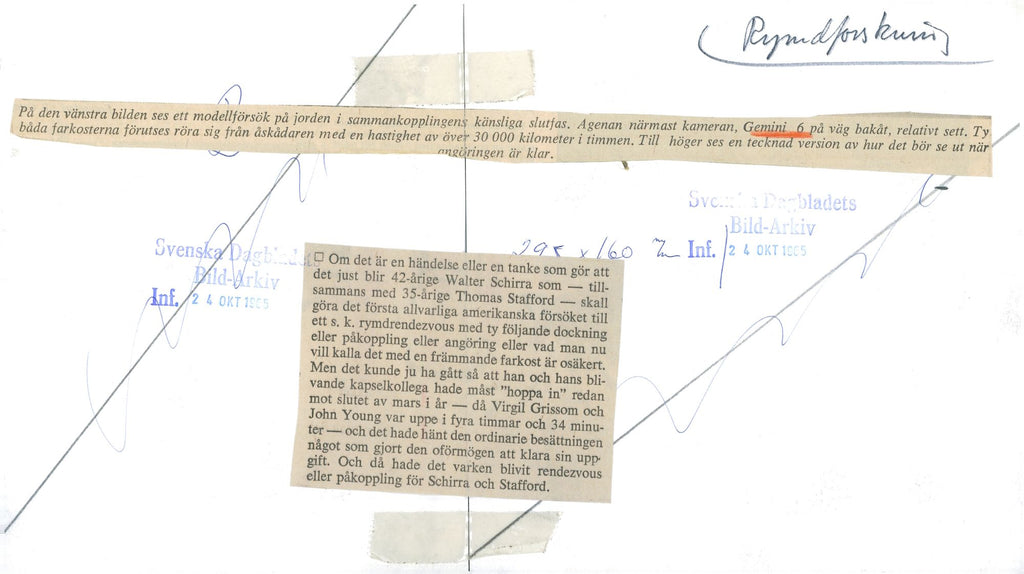 Rymdforskning
På den vänstra bilden ses ett modellförsök på jorden i sammankopplingens känsliga slutfas. Agenan närmast kameran, Gemini 6 på väg bakåt, relativt sett. Ty
båda farkosterna förutses röra sig från åskådaren med en hastighet av över 30 000 kilometer i timmen. Till höger ses en tecknad version av hur det bör se ut när
angöringen är klar.
Svenska Dagbladets
Bild-Arkiv
Inf. 24 OKT 1965
295 x 160
Svenska Dagbladets
Bild-Arkiv
Inf. 24 OKT 1965
□ Om det är en händelse eller en tanke som gör att
det just blir 42-årige Walter Schirra som — till-
sammans med 35-årige Thomas Stafford — skall
göra det första allvarliga amerikanska försöket till
ett s. k. rymdrendezvous med ty följande dockning
eller påkoppling eller angöring eller vad man nu
vill kalla det med en främmande farkost är osäkert.
Men det kunde ju ha gått så att han och hans bli-
vande kapselkollega hade måst "hoppa in" redan
mot slutet av mars i år — då Virgil Grissom och
John Young var uppe i fyra timmar och 34 minu-
ter — och det hade hänt den ordinarie besättningen
något som gjort den oförmögen att klara sin upp-
gift. Och då hade det varken blivit rendezvous
eller påkoppling för Schirra och Stafford.